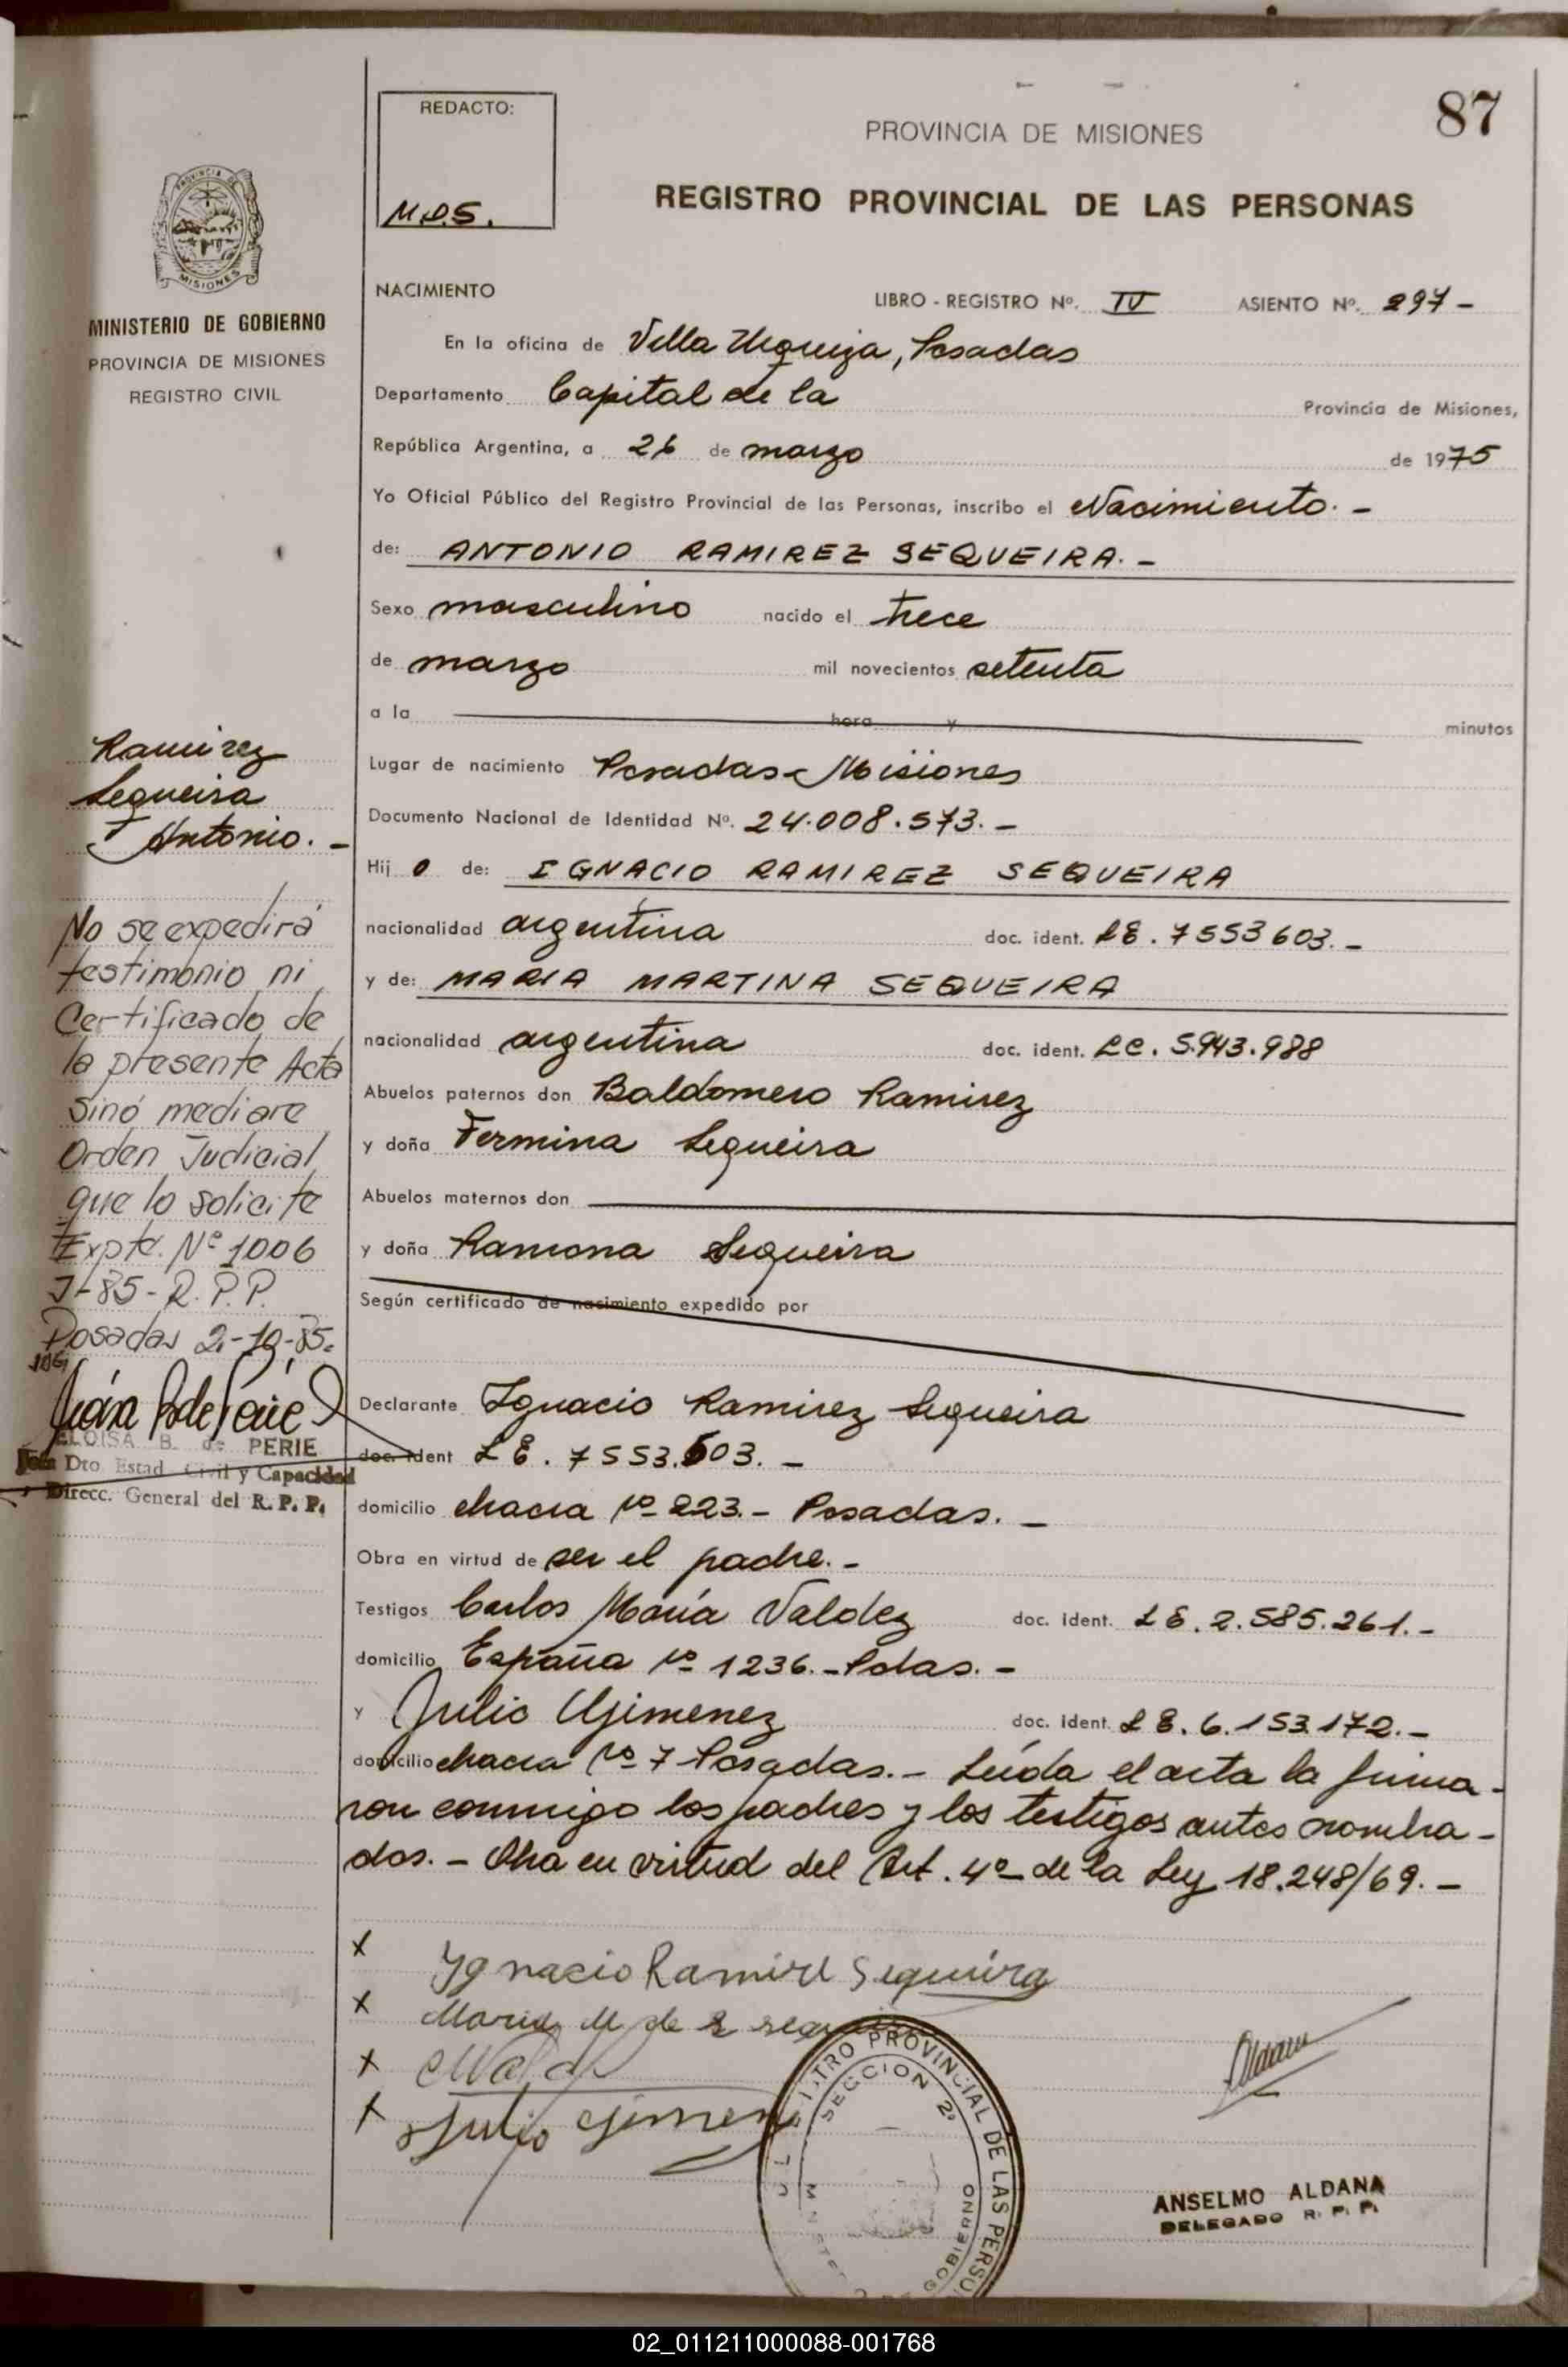 87
REDACTO:
M.D.S.
PROVINCIA DE MISIONES
REGISTRO PROVINCIAL DE LAS PERSONAS
PROVINCIA DE
MISIONES
MINISTERIO DE GOBIERNO
PROVINCIA DE MISIONES
REGISTRO CIVIL
NACIMIENTO LIBRO - REGISTRO Nº. IV ASIENTO Nº. 297 -
En la oficina de Villa Urquiza, Posadas
Departamento Capital de la Provincia de Misiones,
República Argentina, a 26 de marzo de 1975
Yo Oficial Público del Registro Provincial de las Personas, inscribo el Nacimiento. -
de: ANTONIO RAMIREZ SEQUEIRA. -
Sexo masculino nacido el trece
de marzo mil novecientos setenta
a la hora y minutos
Lugar de nacimiento Posadas - Misiones
Documento Nacional de Identidad Nº. 24.008.573. -
Hij o de: IGNACIO RAMIREZ SEQUEIRA
nacionalidad argentina doc. ident. LE. 7553603. -
y de: MARIA MARTINA SEQUEIRA
nacionalidad argentina doc. ident. LC. 5.943.988
Abuelos paternos don Baldomero Ramirez
y doña Fermina Sequeira
Abuelos maternos don
y doña Ramona Sequeira
Según certificado de nacimiento expedido por
Declarante Ignacio Ramirez Sequeira
doc. ident LE. 7553.603. -
domicilio chacra Nº 223. - Posadas. -
Obra en virtud de ser el padre. -
Testigos Carlos María Valdez doc. ident. LE. 2.585.261. -
domicilio España Nº 1236. - Pdas. -
y Julio Gimenez doc. ident. LE. 6.153.172. -
domicilio chacra Nº 7 Posadas. - Leída el acta la firma-
ron conmigo los padres y los testigos antes nombra-
dos. - Obra en virtud del Art. 4º de la Ley 18.248/69. -
Ramirez
Sequeira
Antonio. -
No se expedirá
testimonio ni
Certificado de
la presente Acta
sinó mediare
Orden Judicial
que lo solicite
Expte. Nº 1006
J-85-R.P.P.
Posadas 2-10-85.
ELOISA B. de PERIE
Jefa Dto. Estad. Civil y Capacidad
Direcc. General del R. P. P.
x Ygnacio Ramire Sequeira
x Maria M de
x
x Julio Gimenez
PROVINCIAL DE LAS PERSO
SECCION 2º
GOBIERNO
Aldana
ANSELMO ALDANA
DELEGADO R. P. P.
02_011211000088-001768